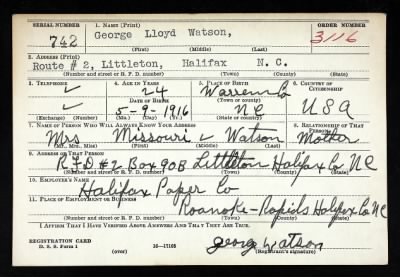 SERIAL NUMBER 1. NAME (Print) ORDER NUMBER
742 George Lloyd Watson, 3116
(First) (Middle) (Last)
2. ADDRESS (Print)
Route # 2, Littleton, Halifax N. C.
(Number and street or R. F. D. number) (Town) (County) (State)
3. TELEPHONE 4. AGE IN YEARS 5. PLACE OF BIRTH 6. COUNTRY OF CITIZENSHIP
✓ 24 Warren Co
DATE OF BIRTH (Town or county)
✓ 5-9-1916 NC USA
(Mo.) (Day) (Yr.) (State or country)
7. NAME OF PERSON WHO WILL ALWAYS KNOW YOUR ADDRESS 8. RELATIONSHIP OF THAT PERSON
Mrs Missouri Watson Mother
(Mr., Mrs., Miss) (First) (Middle) (Last)
9. ADDRESS OF THAT PERSON
RFD #2 Box 90B Littleton Halifax Co NC
(Number and street or R. F. D. number) (Town) (County) (State)
10. EMPLOYER'S NAME
Halifax Paper Co
11. PLACE OF EMPLOYMENT OR BUSINESS
Roanoke-Rapids Halifax Co NC
(Number and street or R. F. D. number) (Town) (County) (State)
I AFFIRM THAT I HAVE VERIFIED ABOVE ANSWERS AND THAT THEY ARE TRUE.
REGISTRATION CARD
D. S. S. Form 1 (over) 16-17105 George Watson
(Registrant's signature)